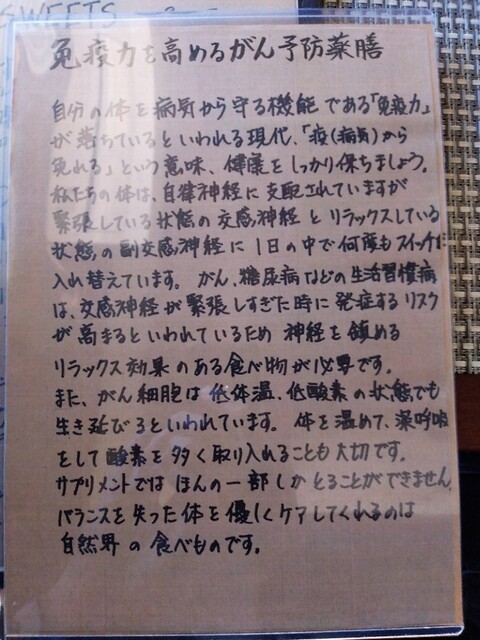 SWEETS
免疫力を高めるがん予防薬膳
自分の体を病気から守る機能である「免疫力」
が落ちているといわれる現代、「疫(病気)から
免れる」という意味、健康をしっかり保ちましょう。
私たちの体は、自律神経に支配されていますが
緊張している状態の交感神経とリラックスしている
状態の副交感神経に1日の中で何度もスイッチを
入れ替えています。がん、糖尿病などの生活習慣病
は、交感神経が緊張しすぎた時に発症するリスク
が高まるといわれているため神経を鎮める
リラックス効果のある食べ物が必要です。
また、がん細胞は低体温、低酸素の状態でも
生き延びるといわれています。体を温めて、深呼吸
をして酸素を多く取り入れることも大切です。
サプリメントではほんの一部しかとることができません。
バランスを失った体を優しくケアしてくれるのは
自然界の食べものです。